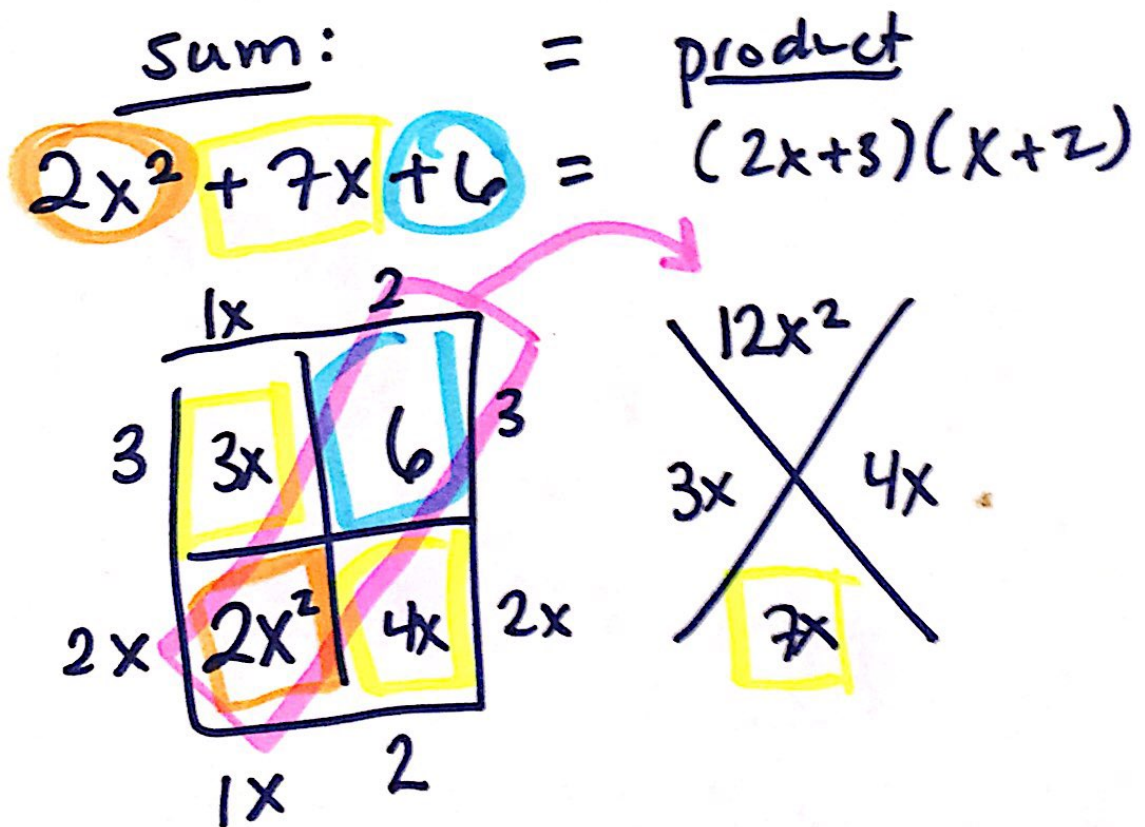 sum: = product
2x² + 7x + 6 = (2x+3)(x+2)
1x 2
3 3x 6 3
2x 2x² 4x 2x
1x 2
12x²
3x 4x
7x